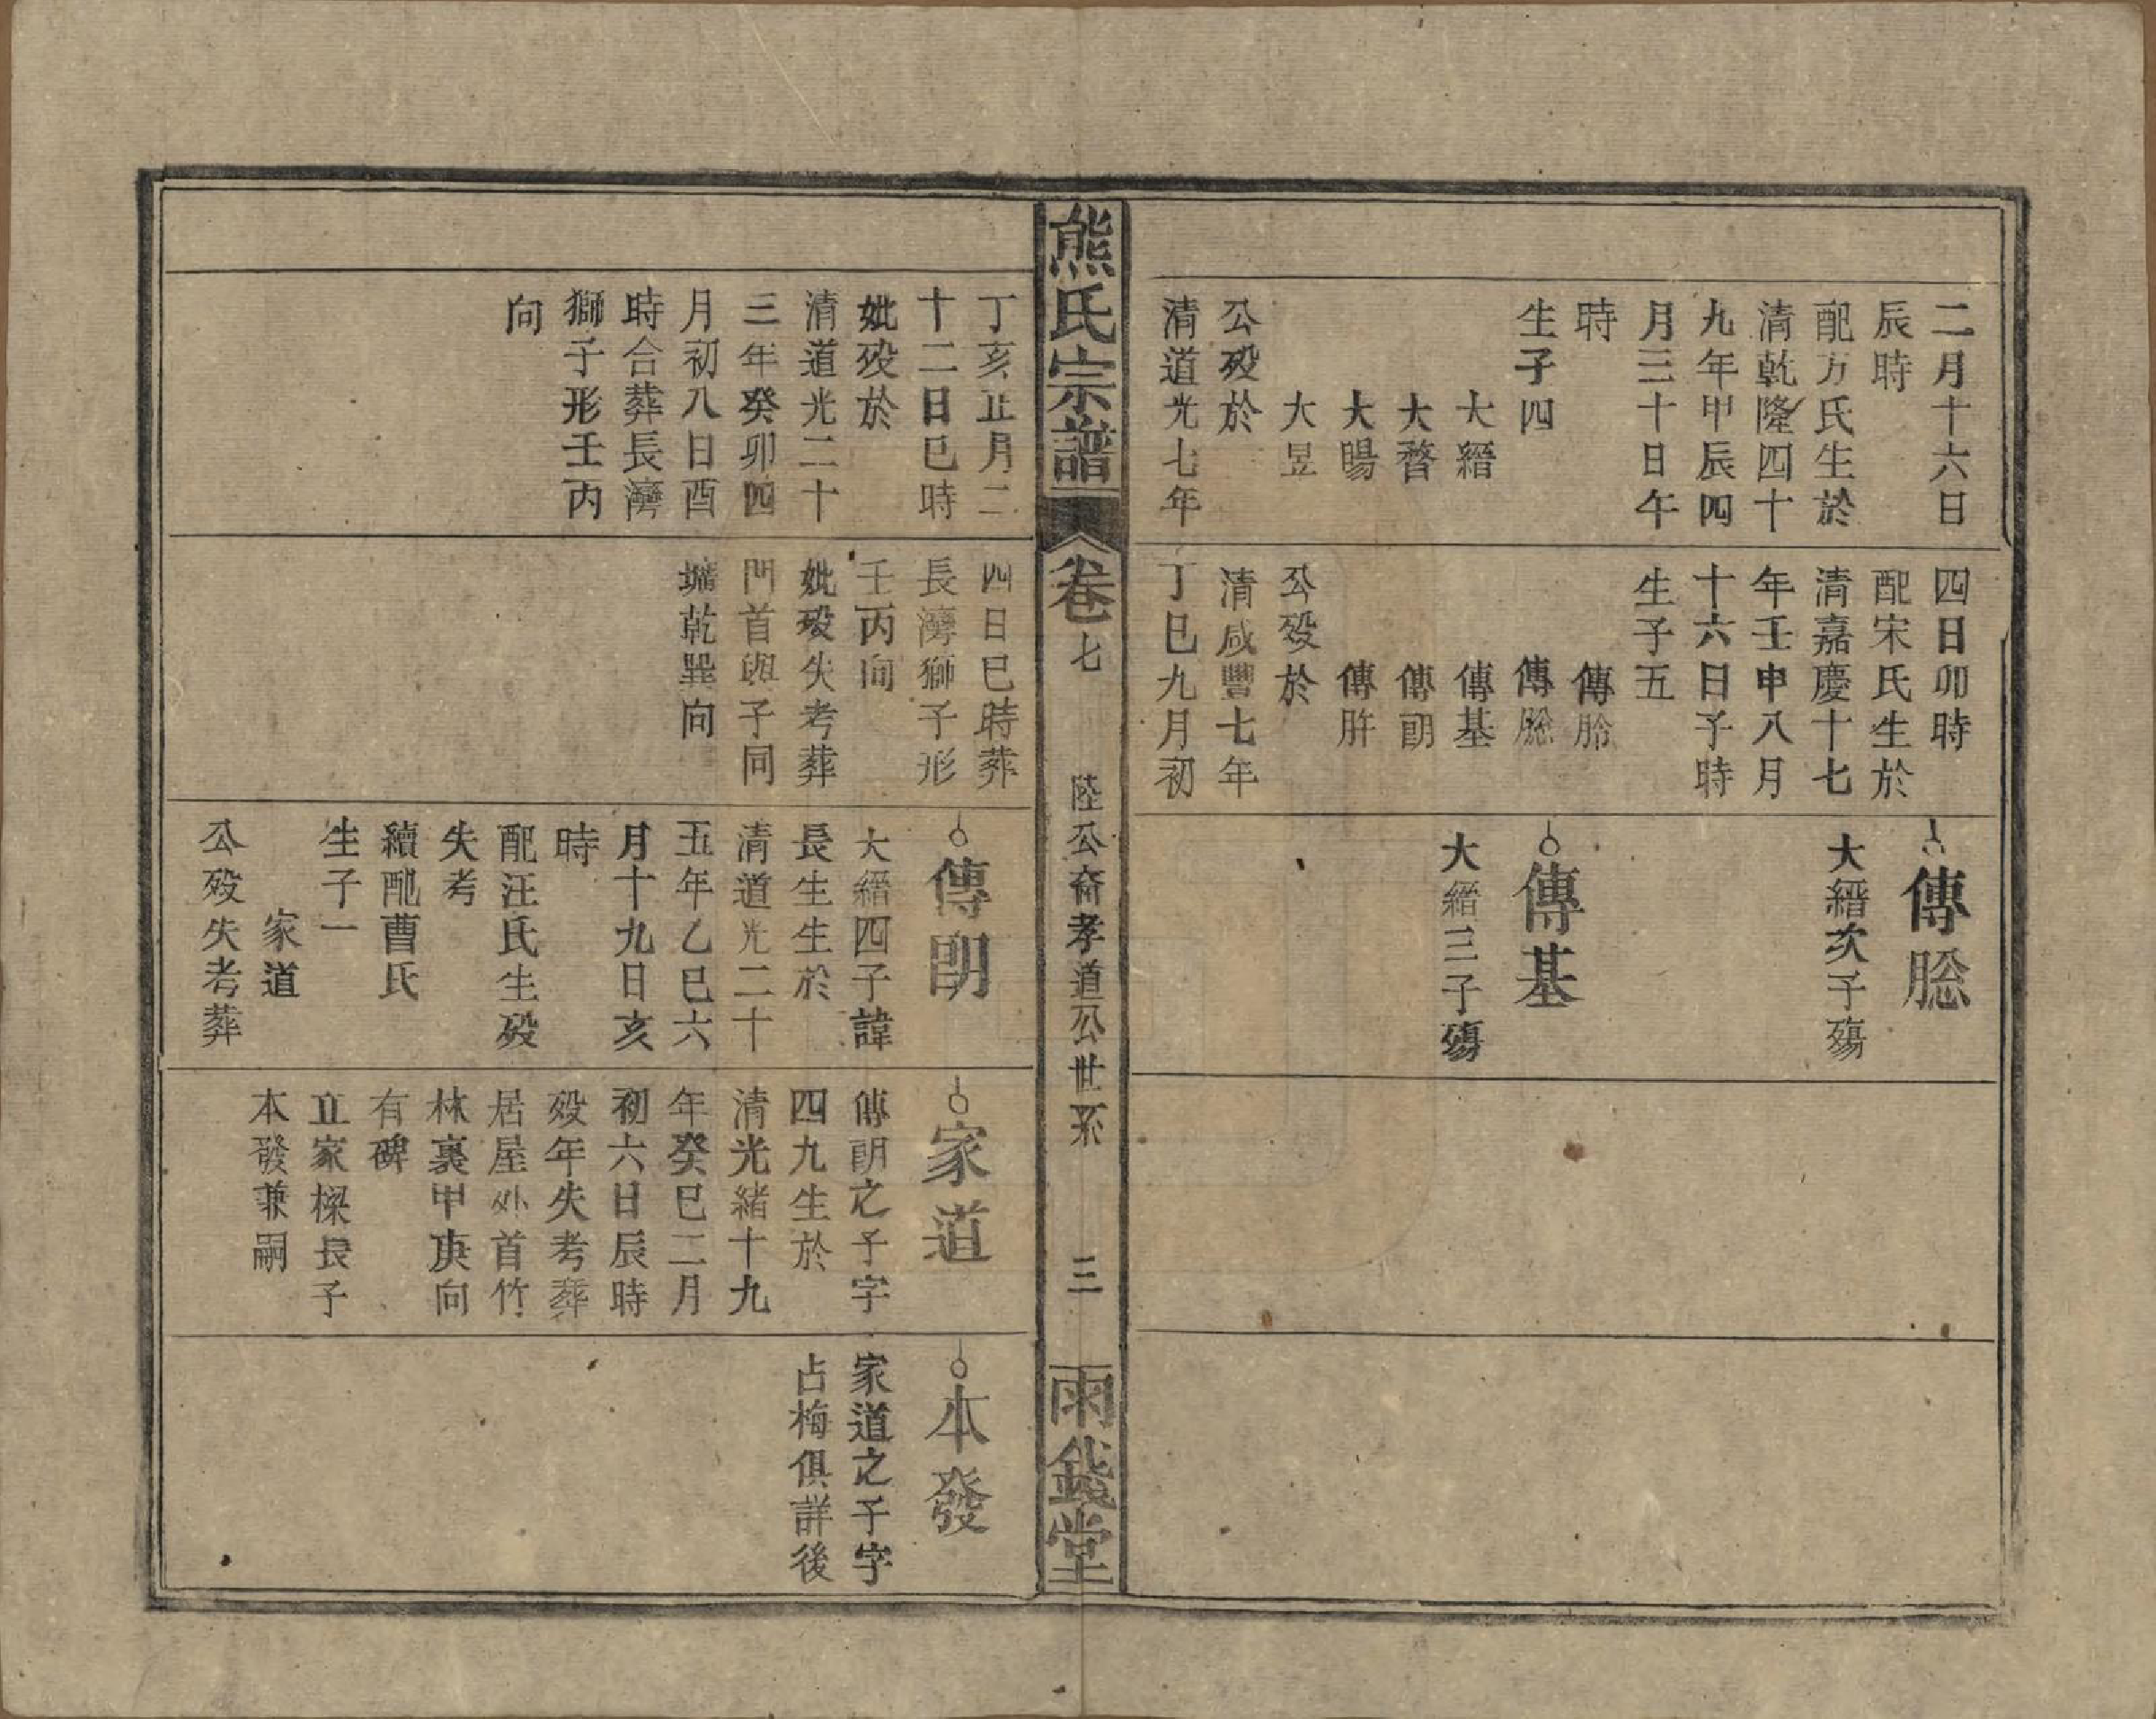 二月十六日
辰時
配方氏生於
清乾隆四十
九年甲辰四
月三十日午
時
生子四
大縉
大瞀
大暘
大昱
公歿於
清道光七年
四日卯時
配宋氏生於
清嘉慶十七
年壬申八月
十六日子時
生子五
傳朎
傳朎
傳基
傳朙
傳
公歿於
清咸豐七年
丁巳九月初
傳
大縉次子殤
傳基
大縉三子殤
熊氏宗譜
卷七
陸公裔孝道公世系
三
雨錢堂
丁亥正月二
十二日巳時
妣歿於
清道光二十
三年癸卯四
月初八日酉
時合葬長灣
獅子形壬丙
向
四日巳時葬
長灣獅子形
壬丙向
妣歿失考葬
門首與子同
塽乾巽向
傳朙
大縉四子諱
長生生於
清道光二十
五年乙巳六
月十九日亥
時
配汪氏生歿
失考
續配曹氏
生子一
家道
公歿失考葬
家道
傳朙之子字
四九生於
清光緒十九
年癸巳二月
初六日辰時
歿年失考葬
居屋外首竹
林裏甲庚向
有碑
立家樑長子
本發兼嗣
本發
家道之子字
占梅俱詳後